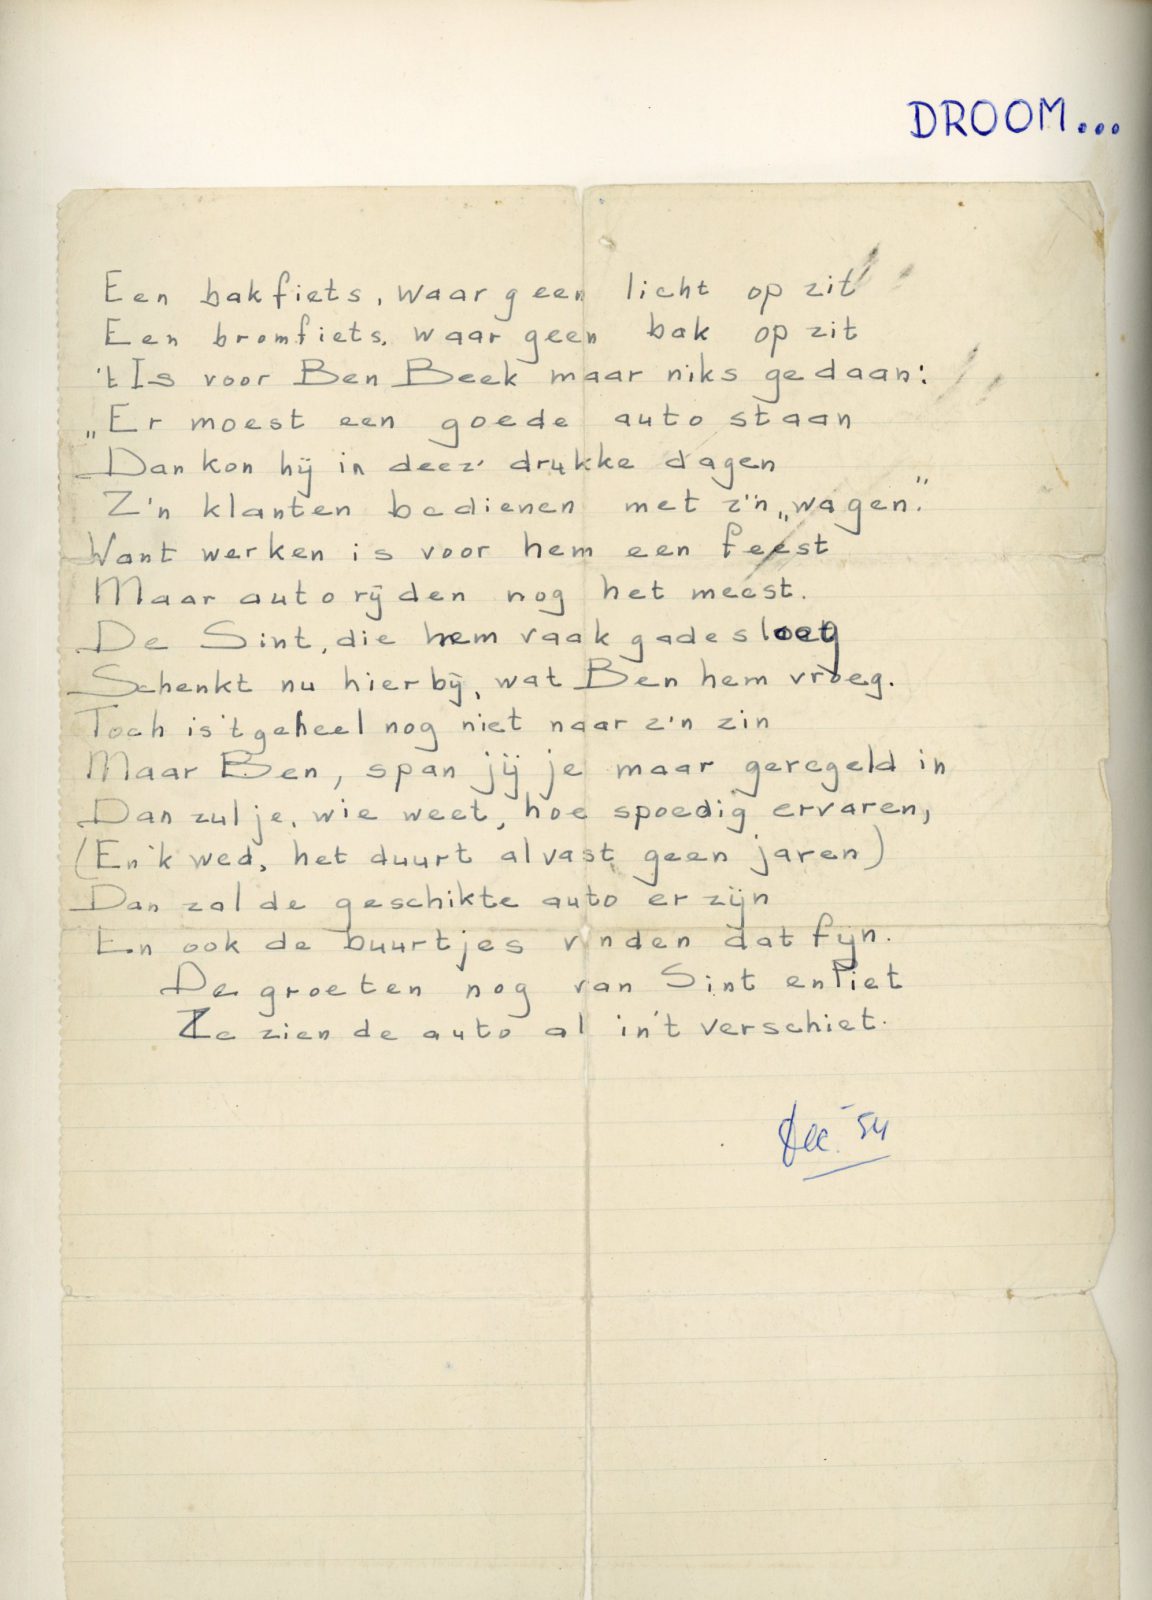 DROOM...
Een bakfiets, waar geen licht op zit
Een bromfiets, waar geen bak op zit
't Is voor Ben Beek maar niks gedaan:
„Er moest een goede auto staan
Dan kon hij in deez' drukke dagen
Z'n klanten bedienen met z'n „wagen."
Want werken is voor hem een feest
Maar autorijden nog het meest.
De Sint, die hem vaak gadesloeg
Schenkt nu hierbij, wat Ben hem vroeg.
Toch is 't geheel nog niet naar z'n zin
Maar Ben, span jij je maar geregeld in
Dan zul je, wie weet, hoe spoedig ervaren,
(En 'k wed, het duurt alvast geen jaren)
Dan zal de geschikte auto er zijn
En ook de buurtjes vinden dat fijn.
De groeten nog van Sint en Piet
Ze zien de auto al in 't verschiet.
dec. '54